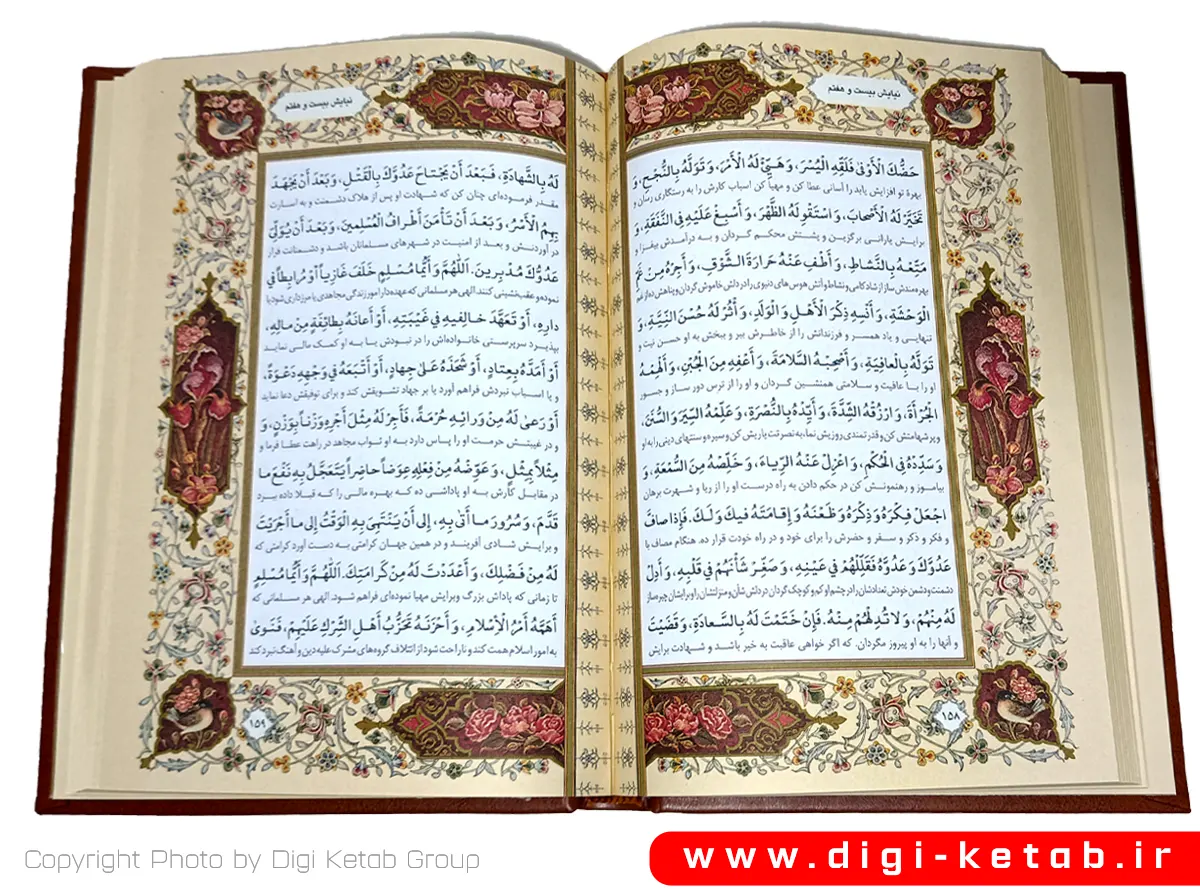 نیایش بیست و هفتم
حَظُّكَ الْأَوْفىٰ فَلَقِّهِ الْيُسْرَ، وَ هَيِّئْ لَهُ الْأَمْرَ، وَ تَوَلَّهُ بِالنُّجْحِ، وَ
بهرهٔ تو افزایش یابد را آسانی عطا کن و مهیا کن اسباب کارش را به رستگاری رسان و
تَخَيَّرْ لَهُ الْأَصْحابَ، وَ اسْتَقْوِ لَهُ الظَّهْرَ، وَ أَسْبِغْ عَلَيْهِ فِي النَّفَقَةِ، وَ
برایش یارانی برگزین و پشتش محکم گردان و به درآمدش بیفزا و
مَتِّعْهُ بِالنَّشاطِ، وَ أَطْفِ عَنْهُ حَرارَةَ الشَّوْقِ، وَ أَجِرْهُ مِنْ غَمِّ
بهره‌مندش ساز از شادکامی و نشاط و آتش هوس‌های دنیوی را در دلش خاموش گردان و پناهش ده از غم
الْوَحْشَةِ، وَ أَنْسِهِ ذِكْرَ الْأَهْلِ وَ الْوَلَدِ، وَ أْثُرْ لَهُ حُسْنَ النِّيَّةِ، وَ
تنهایی و یاد همسر و فرزندانش را از خاطرش ببر و ببخش به او حسن نیت و
تَوَلَّهُ بِالْعافِيَةِ، وَ أَصْحِبْهُ السَّلامَةَ، وَ أَعْفِهِ مِنَ الْجُبْنِ، وَ أَلْهِمْهُ
او را با عافیت و سلامتی همنشین گردان و او را از ترس دور ساز و جسور
الْجُرْأَةَ، وَ ارْزُقْهُ الشِّدَّةَ، وَ أَيِّدْهُ بِالنُّصْرَةِ، وَ عَلِّمْهُ السِّيَرَ وَ السُّنَنَ،
و پر شهامتش کن و قدرتمندی روزیش نما، به نصرتت یاریش کن و سیره و سنتهای دینی را به او
وَ سَدِّدْهُ فِي الْحُكْمِ، وَ اعْزِلْ عَنْهُ الرِّياءَ، وَ خَلِّصْهُ مِنَ السُّمْعَةِ، وَ
بیاموز و رهنمونش کن در حکم دادن به راه درست او را از ریا و شهرت برهان
اجْعَلْ فِكْرَهُ وَ ذِكْرَهُ وَ ظَعْنَهُ وَ إِقامَتَهُ فيكَ وَ لَكَ. فَإِذا صافَّ
و فکر و ذکر و سفر و حضرش را برای خود و در راه خودت قرار ده. هنگام مصاف با
عَدُوَّكَ وَ عَدُوَّهُ فَقَلِّلْهُمْ في عَيْنِهِ، وَ صَغِّرْ شَأْنَهُمْ في قَلْبِهِ، وَ أَدِلْ
دشمنت و دشمن خودش تعدادشان را در چشم او کم و کوچک گردان در دلش شأن و منزلتشان را و برایشان چیره ساز
لَهُ مِنْهُمْ، وَ لا تُدِلْهُمْ مِنْهُ. فَإِنْ خَتَمْتَ لَهُ بِالسَّعادَةِ، وَ قَضَيْتَ
و آنها را به او پیروز مگردان. که اگر خواهی عاقبت به خیر باشد و شهادت برایش
۱۵۸
نیایش بیست و هفتم
لَهُ بِالشَّهادَةِ، فَبَعْدَ أَنْ يَجْتاحَ عَدُوَّكَ بِالْقَتْلِ، وَ بَعْدَ أَنْ يَجْهَدَ
مقدر فرموده‌ای چنان کن که شهادت او پس از هلاک دشمنت و به اسارت
بِهِمُ الْأَسْرُ، وَ بَعْدَ أَنْ تَأْمَنَ أَطْرافُ الْمُسْلِمينَ، وَ بَعْدَ أَنْ يُوَلِّيَ
در آوردنش و بعد از امنیت در شهرهای مسلمانان باشد و دشمنانت فرار
عَدُوُّكَ مُدْبِرينَ. اَللّٰهُمَّ وَ أَيُّما مُسْلِمٍ خَلَفَ غازِياً أَوْ مُرابِطاً في
نموده و عقب‌نشینی کنند الهی هر مسلمانی که عهده‌دار امور زندگی مجاهدی یا مرزداری شود یا
دارِهِ، أَوْ تَعَهَّدَ خالِفيهِ في غَيْبَتِهِ، أَوْ أَعانَهُ بِطائِفَةٍ مِنْ مالِهِ،
بپذیرد سرپرستی خانواده‌اش را در نبودش یا به او کمک مالی نماید
أَوْ أَمَدَّهُ بِعِتادٍ، أَوْ شَحَذَهُ عَلىٰ جِهادٍ، أَوْ أَتْبَعَهُ في وَجْهِهِ دَعْوَةً،
و یا اسباب نبردش فراهم آورد یا بر جهاد تشویقش کند و برای توفیقش دعا نماید
أَوْ رَعىٰ لَهُ مِنْ وَرائِهِ حُرْمَةً، فَأَجِرْ لَهُ مِثْلَ أَجْرِهِ وَزْناً بِوَزْنٍ، وَ
و در غیبتش حرمت او را پاس دارد به او ثواب مجاهد در راهت عطا فرما و
مِثْلاً بِمِثْلٍ، وَ عَوِّضْهُ مِنْ فِعْلِهِ عِوَضاً حاضِراً يَتَعَجَّلُ بِهِ نَفْعَ ما
در مقابل کارش به او پاداشی ده که بهره مالی را که قبلا داده ببرد
قَدَّمَ، وَ سُرُورَ ما أَتىٰ بِهِ، إِلىٰ أَنْ يَنْتَهِيَ بِهِ الْوَقْتُ إِلىٰ ما أَجْرَيْتَ
و برایش شادی آفریند و در همین جهان کرامتی به دست آورد کرامتی که
لَهُ مِنْ فَضْلِكَ، وَ أَعْدَدْتَ لَهُ مِنْ كَرامَتِكَ. اَللّٰهُمَّ وَ أَيُّما مُسْلِمٍ
تا زمانی که پاداش بزرگ وبرایش مهیا نموده‌ای فراهم شود. الهی هر مسلمانی که
أَهَمَّهُ أَمْرُ الْإِسْلامِ، وَ أَحْزَنَهُ تَحَزُّبُ أَهْلِ الشِّرْكِ عَلَيْهِمْ، فَنَوىٰ
به امور اسلام همت کند و ناراحت شود از ائتلاف گروه‌های مشرک علیه دین و آهنگ نبرد کند
۱۵۹
Copyright Photo by Digi Ketab Group
www.digi-ketab.ir